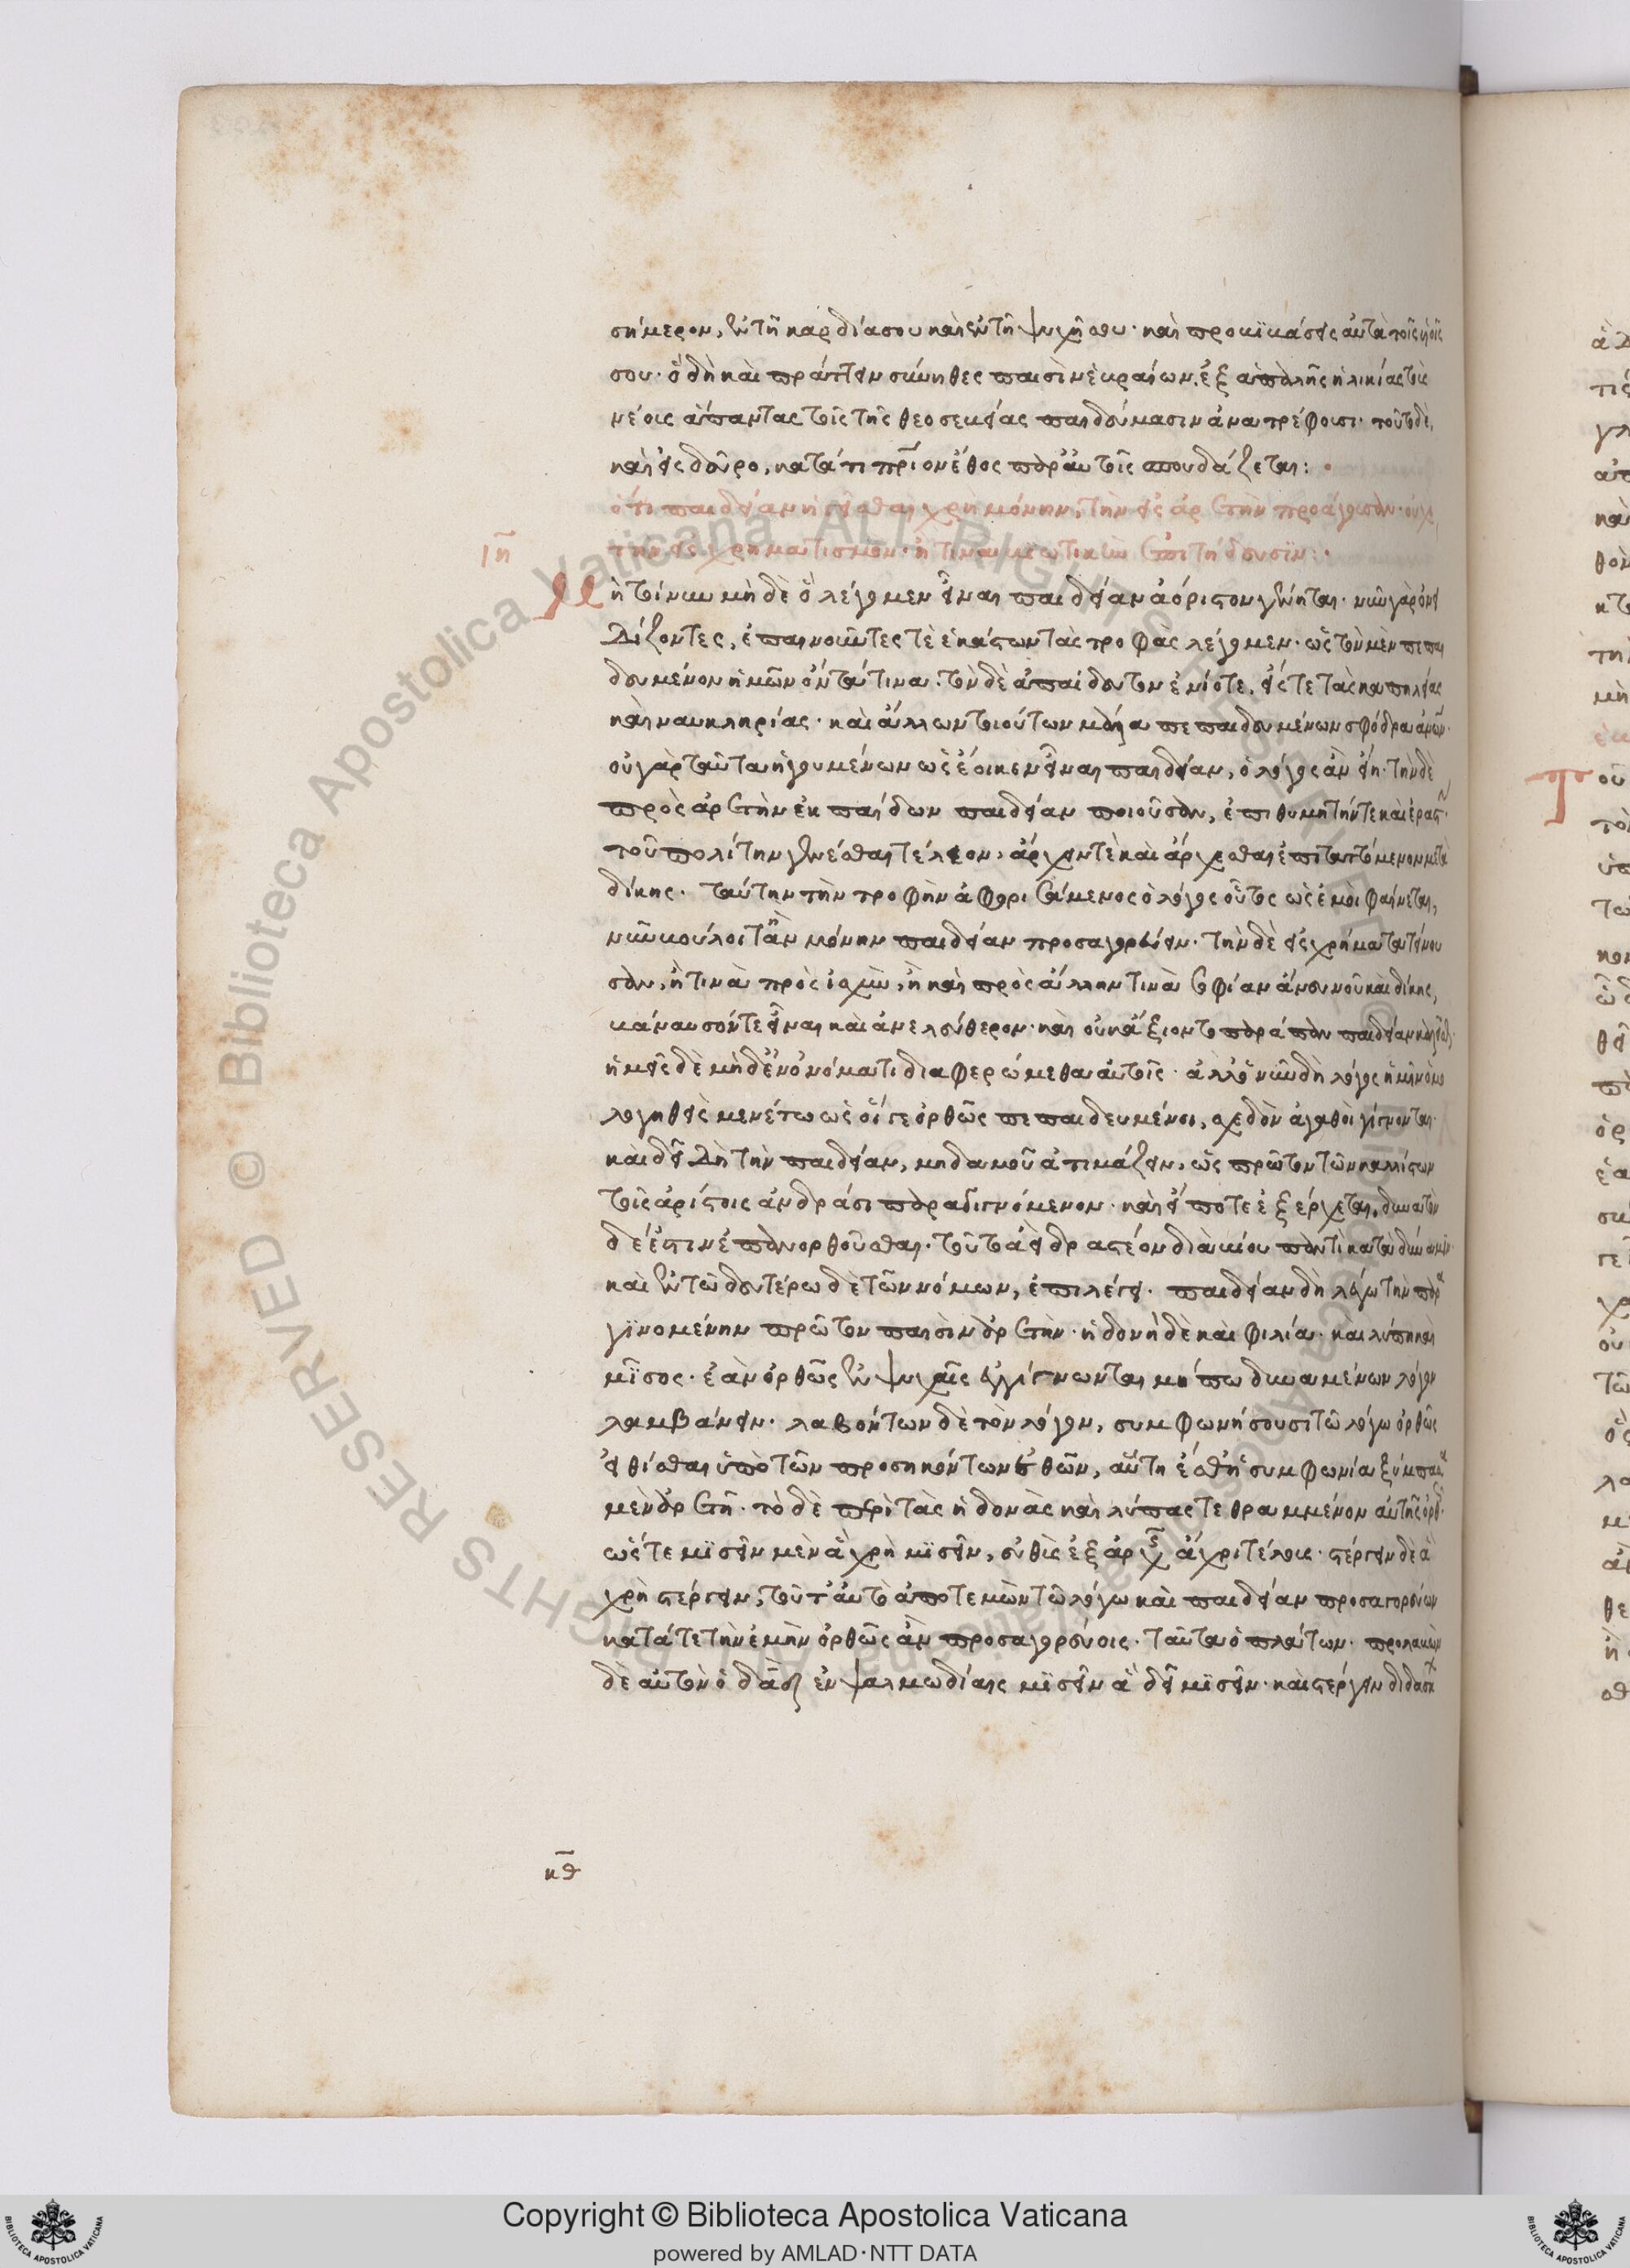 σήμερον, ἐν τῇ καρδίᾳ σου καὶ ἐν τῇ ψυχῇ σου· καὶ προβιβάσεις αὐτὰ τοῖς υἱοῖς
σου· ὃ δὴ καὶ πράττειν σύνηθες παισὶν ἑβραίων. ἐξ ἁπαλῆς ἡλικίας τοὺς
νέους ἅπαντας τοῖς τῆς θεοσεβείας παιδεύμασιν ἀνατρέφουσι· τοῦτο δὲ,
καὶ εἰς δεῦρο, κατά τι πάτριον ἔθος παρ' αὐτοῖς σπουδάζεται:
ὅτι παιδείαν ἡγεῖσθαι χρὴ μόνην, τὴν εἰς ἀρετὴν προάγουσαν· οὐχὶ
τὴν εἰς χρηματισμὸν· ἤ τινα βιωτικὴν ἐπιτήδευσιν:
ιη
Μὴ τοίνυν μὴδὲ ὃ λέγομεν εἶναι παιδείαν ἀόριστον γένηται· νῦν γὰρ ὀνει
δίζοντες, ἐπαινοῦντές τὲ ἑκάστων τὰς τροφὰς λέγομεν· ὡς τὸν μὲν πεπαι
δευμένον ἡμῶν ὄντά τινα. τὸν δὲ ἀπαίδευτον ἐνίοτε, εἴς τε τὰς καπηλείας
καὶ ναυκληρίας· καὶ ἄλλων τοιούτων μάλα πεπαιδευμένων σφόδρα ἀνθρώπων·
οὐ γὰρ ταῦτα ἡγουμένων ὡς ἔοικεν εἶναι παιδείαν, ὁ λόγος ἂν εἴη· τὴν δὲ
πρὸς ἀρετὴν ἐκ παίδων παιδείαν ποιοῦσαν, ἐπιθυμητήν τε καὶ ἐραστὴν
τοῦ πολίτην γενέσθαι τέλεον, ἄρχειν τὲ καὶ ἄρχεσθαι ἐπιταττόμενον μετὰ
δίκης. ταύτην τὴν τροφὴν ἀφορισάμενος ὁ λόγος οὗτος ὡς ἐμοὶ φαίνεται,
νῦν βούλοιτ' ἂν μόνην παιδείαν προσαγορεύειν· τὴν δὲ εἰς χρήματα τείνου
σαν, ἤ τινα πρὸς ἰσχὺν, ἢ καὶ πρὸς ἄλλην τινὰ σοφίαν ἄνευ νοῦ καὶ δίκης,
βάναυσόν τε εἶναι καὶ ἀνελεύθερον· καὶ οὐκ ἄξιον τὸ παράπαν παιδείαν καλεῖσθαι·
ἡμεῖς δὲ μὴδὲν ὀνόματι διαφερώμεθα αὐτοῖς· ἀλλ' ὁ νῦν δὴ λόγος ἡμῖν ὁμο
λογηθεὶς μενέτω ὡς οἵ γε ὀρθῶς πεπαιδευμένοι, σχεδὸν ἀγαθοὶ γίγνονται·
καὶ δεῖ δὴ τὴν παιδείαν, μηδαμοῦ ἀτιμάζειν, ὡς πρῶτον τῶν καλλίστων
τοῖς ἀρίστοις ἀνδράσι παραγιγνόμενον· καὶ εἴ ποτε ἐξέρχεται, δυνατὸν
δέ ἐστιν ἐπανορθοῦσθαι. τοῦτ' ἀεὶ δραστέον διὰ βίου παντὶ κατὰ δύναμιν·
καὶ ἐν τῷ δευτέρῳ δὲ τῶν νόμων, ἐπιλέγει. παιδείαν δὴ λέγω τὴν παρα
γινομένην πρῶτον παισὶν ἀρετὴν· ἡδονὴ δὲ καὶ φιλία· καὶ λύπη καὶ
μῖσος· ἐὰν ὀρθῶς ἐν ψυχαῖς ἐγγίγνωνται μήπω δυναμένων λόγον
λαμβάνειν. λαβόντων δὲ τὸν λόγον, συμφωνήσουσι τῷ λόγῳ ὀρθῶς
εἰθίσθαι ὑπὸ τῶν προσηκόντων ἐθῶν, αὕτη ἔσθ' ἡ συμφωνία ξύμπασα
μὲν ἀρετὴ· τὸ δὲ περὶ τὰς ἡδονὰς καὶ λύπας τεθραμμένον αὐτῆς ὀρθῶς·
ὥστε μισεῖν μὲν ἃ χρὴ μισεῖν, εὐθὺς ἐξ ἀρχῆς ἄχρι τέλους· στέργειν δὲ ἃ
χρὴ στέργειν, τοῦτ' αὐτὸ ἀποτεμὼν τῷ λόγῳ καὶ παιδείαν προσαγορεύων
κατά τε τὴν ἐμὴν ὀρθῶς ἂν προσαγορεύοις. ταῦτα ὁ πλάτων. προλαβὼν
δὲ αὐτὸν ὁ δαδ ἐν ψαλμωδίαις μισεῖν ἃ δεῖ μισεῖν· καὶ στέργειν διδάσκει
κθ
Copyright © Biblioteca Apostolica Vaticana
powered by AMLAD·NTT DATA